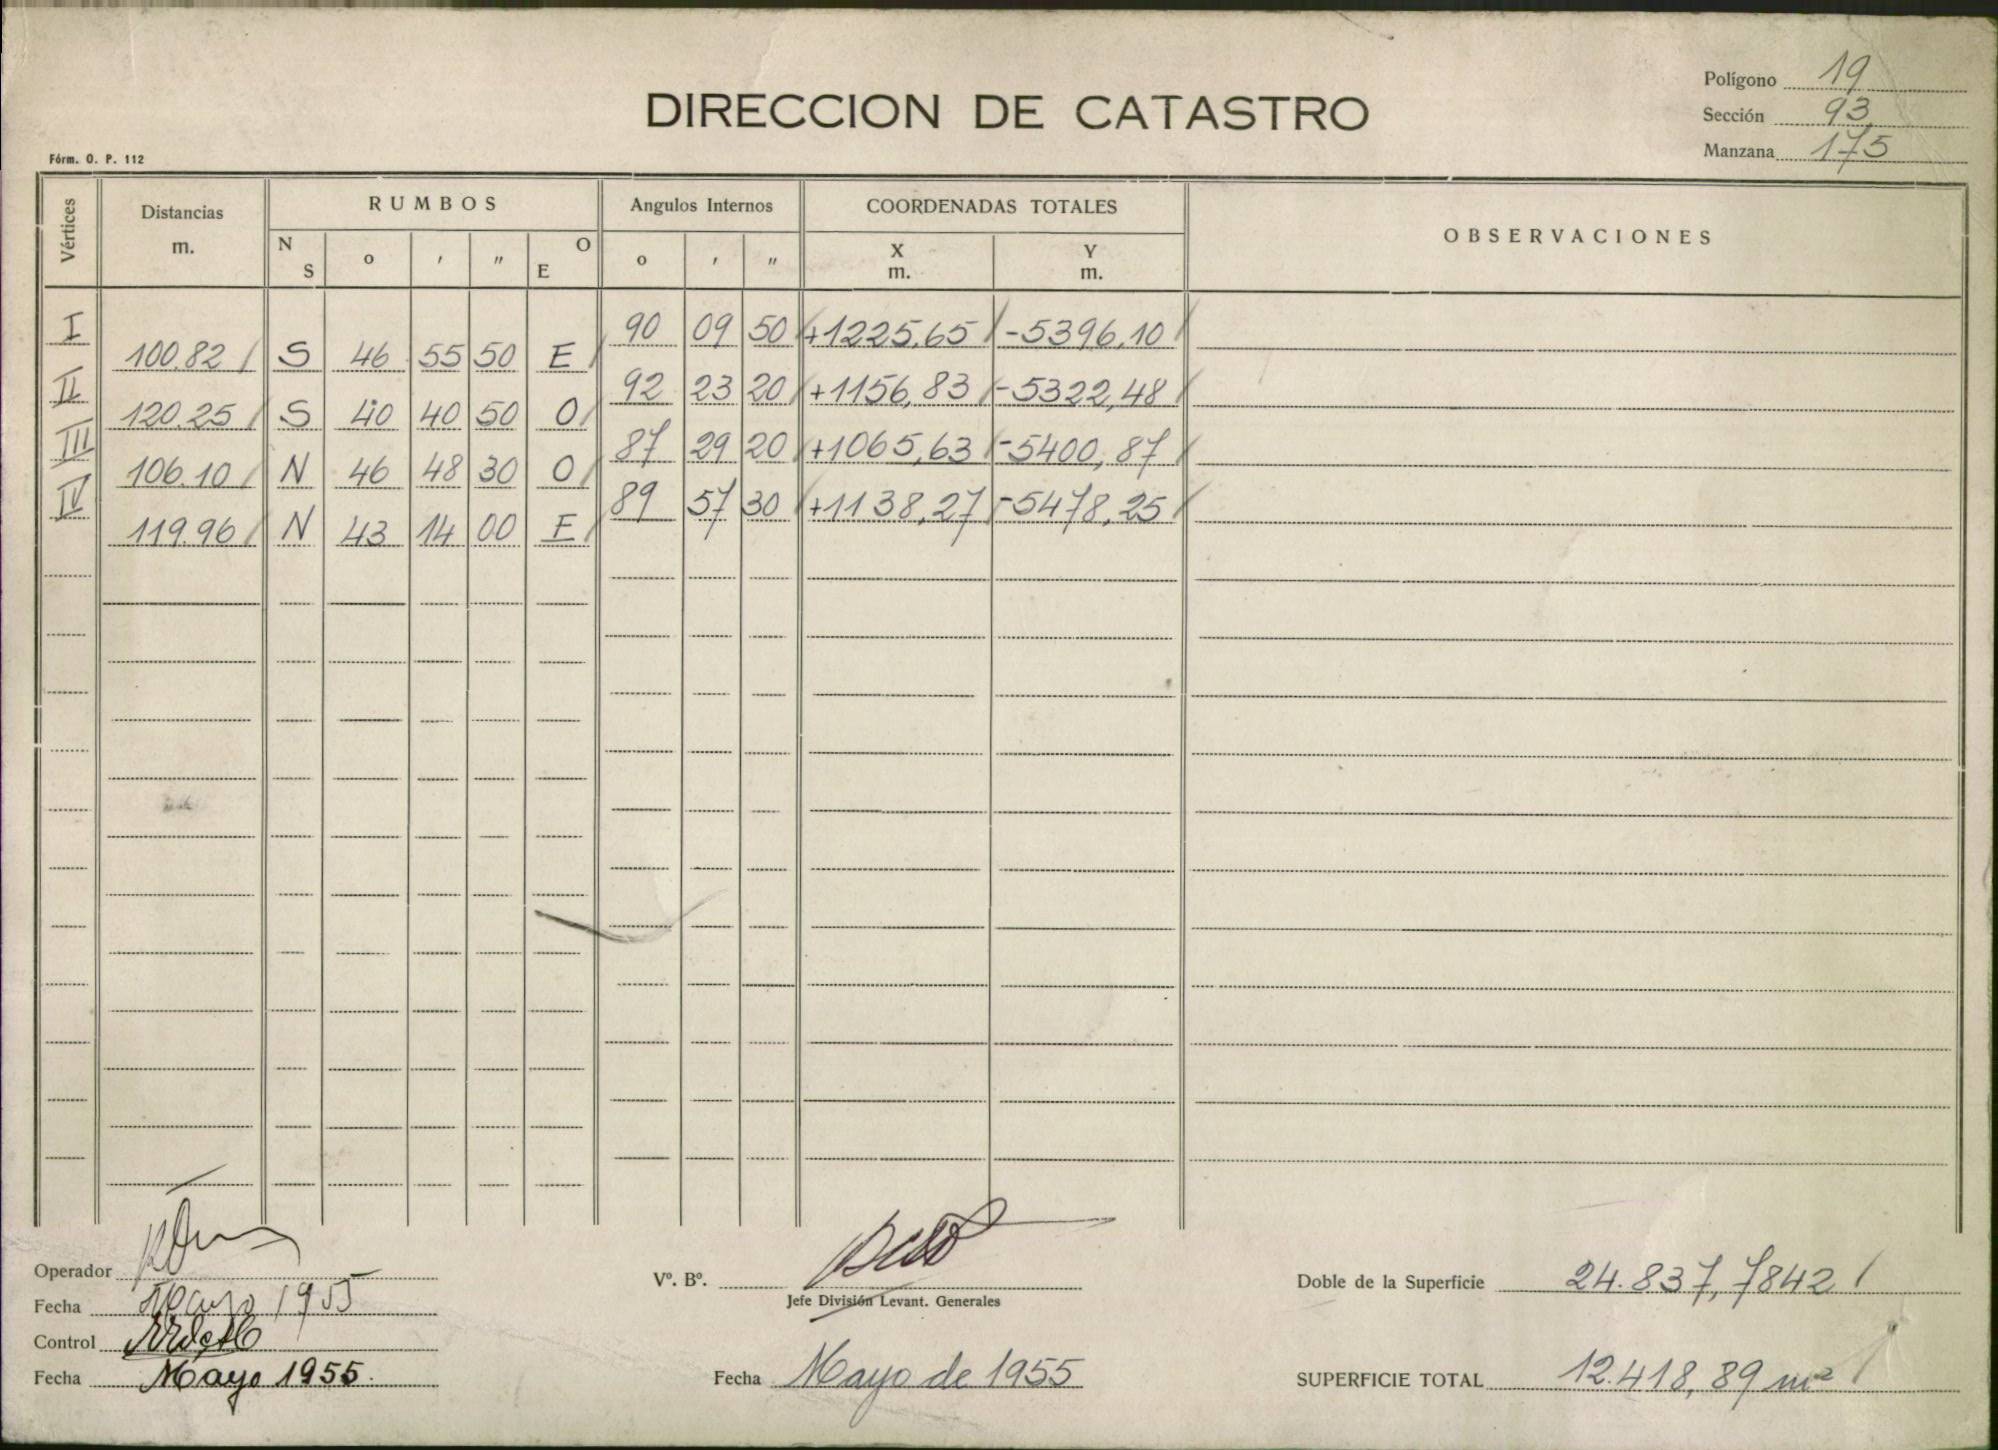 Polígono 19
DIRECCION DE CATASTRO
Sección 93
Manzana 175
Fórm. O. P. 112
Vértices Distancias m. RUMBOS Angulos Internos COORDENADAS TOTALES OBSERVACIONES
N S o ' " O E o ' " X m. Y m.
I 90 09 50 +1225,65 -5396,10
100.82 S 46 55 50 E
II 92 23 20 +1156,83 -5322,48
120.25 S 40 40 50 O
III 87 29 20 +1065,63 -5400,87
106.10 N 46 48 30 O
IV 89 57 30 +1138,27 -5478,25
119.96 N 43 14 00 E
Operador
Vº. Bº.
Doble de la Superficie 24.837,7842
Jefe División Levant. Generales
Fecha Mayo 1955
Control
Fecha Mayo 1955.
Fecha Mayo de 1955
SUPERFICIE TOTAL 12.418,89 m²